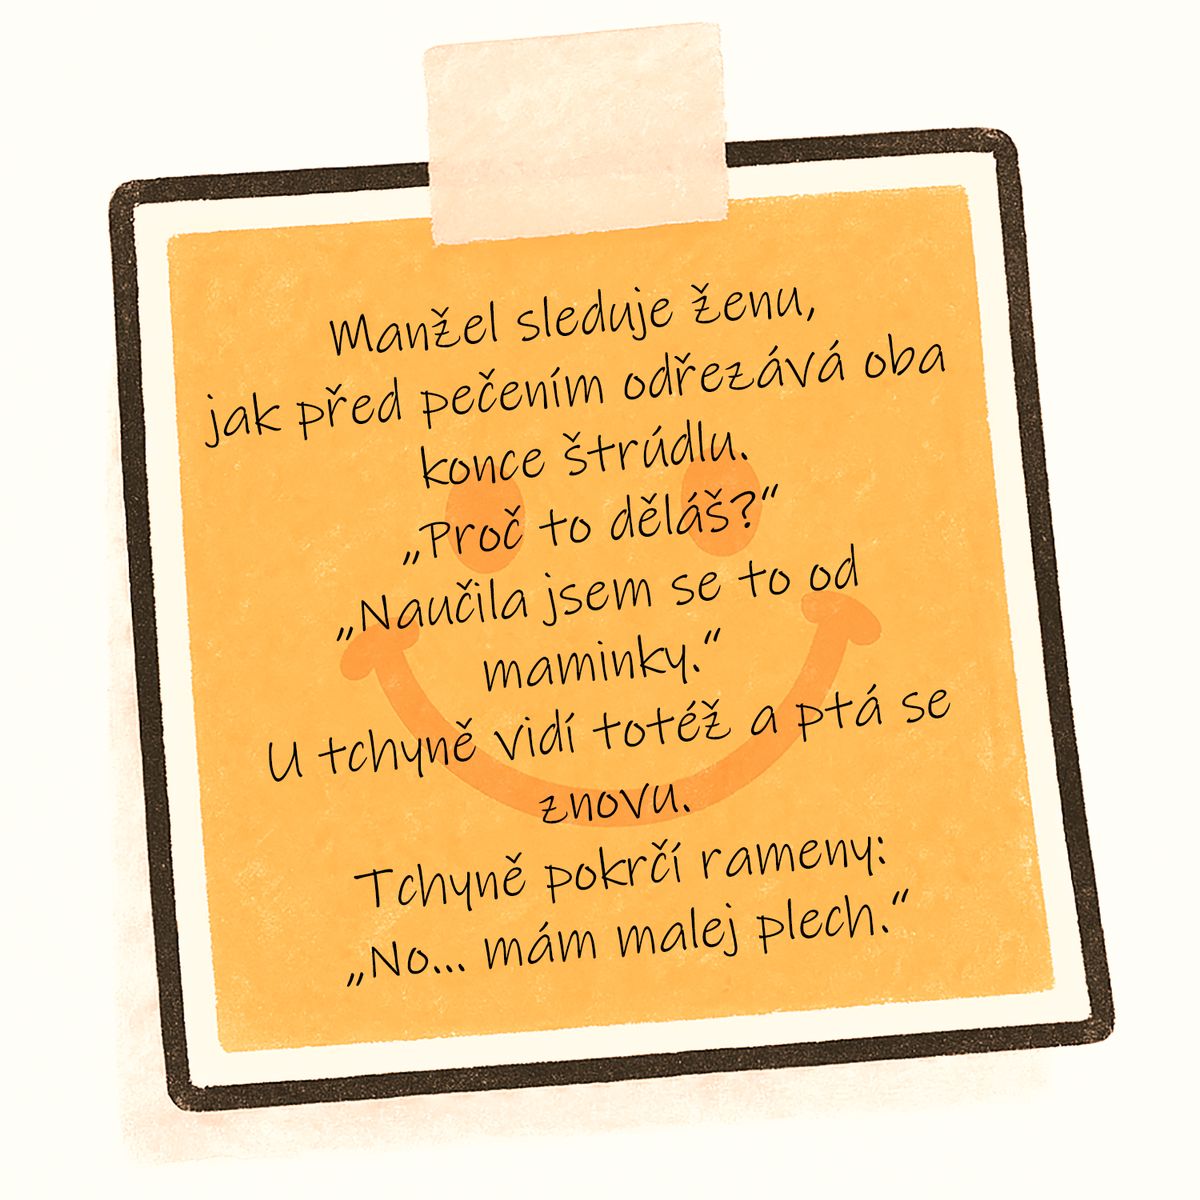 Manžel sleduje ženu,
jak před pečením odřezává oba
konce štrúdlu.
„Proč to děláš?“
„Naučila jsem se to od
maminky.“
U tchyně vidí totéž a ptá se
znovu.
Tchyně pokrčí rameny:
„No... mám malej plech.“